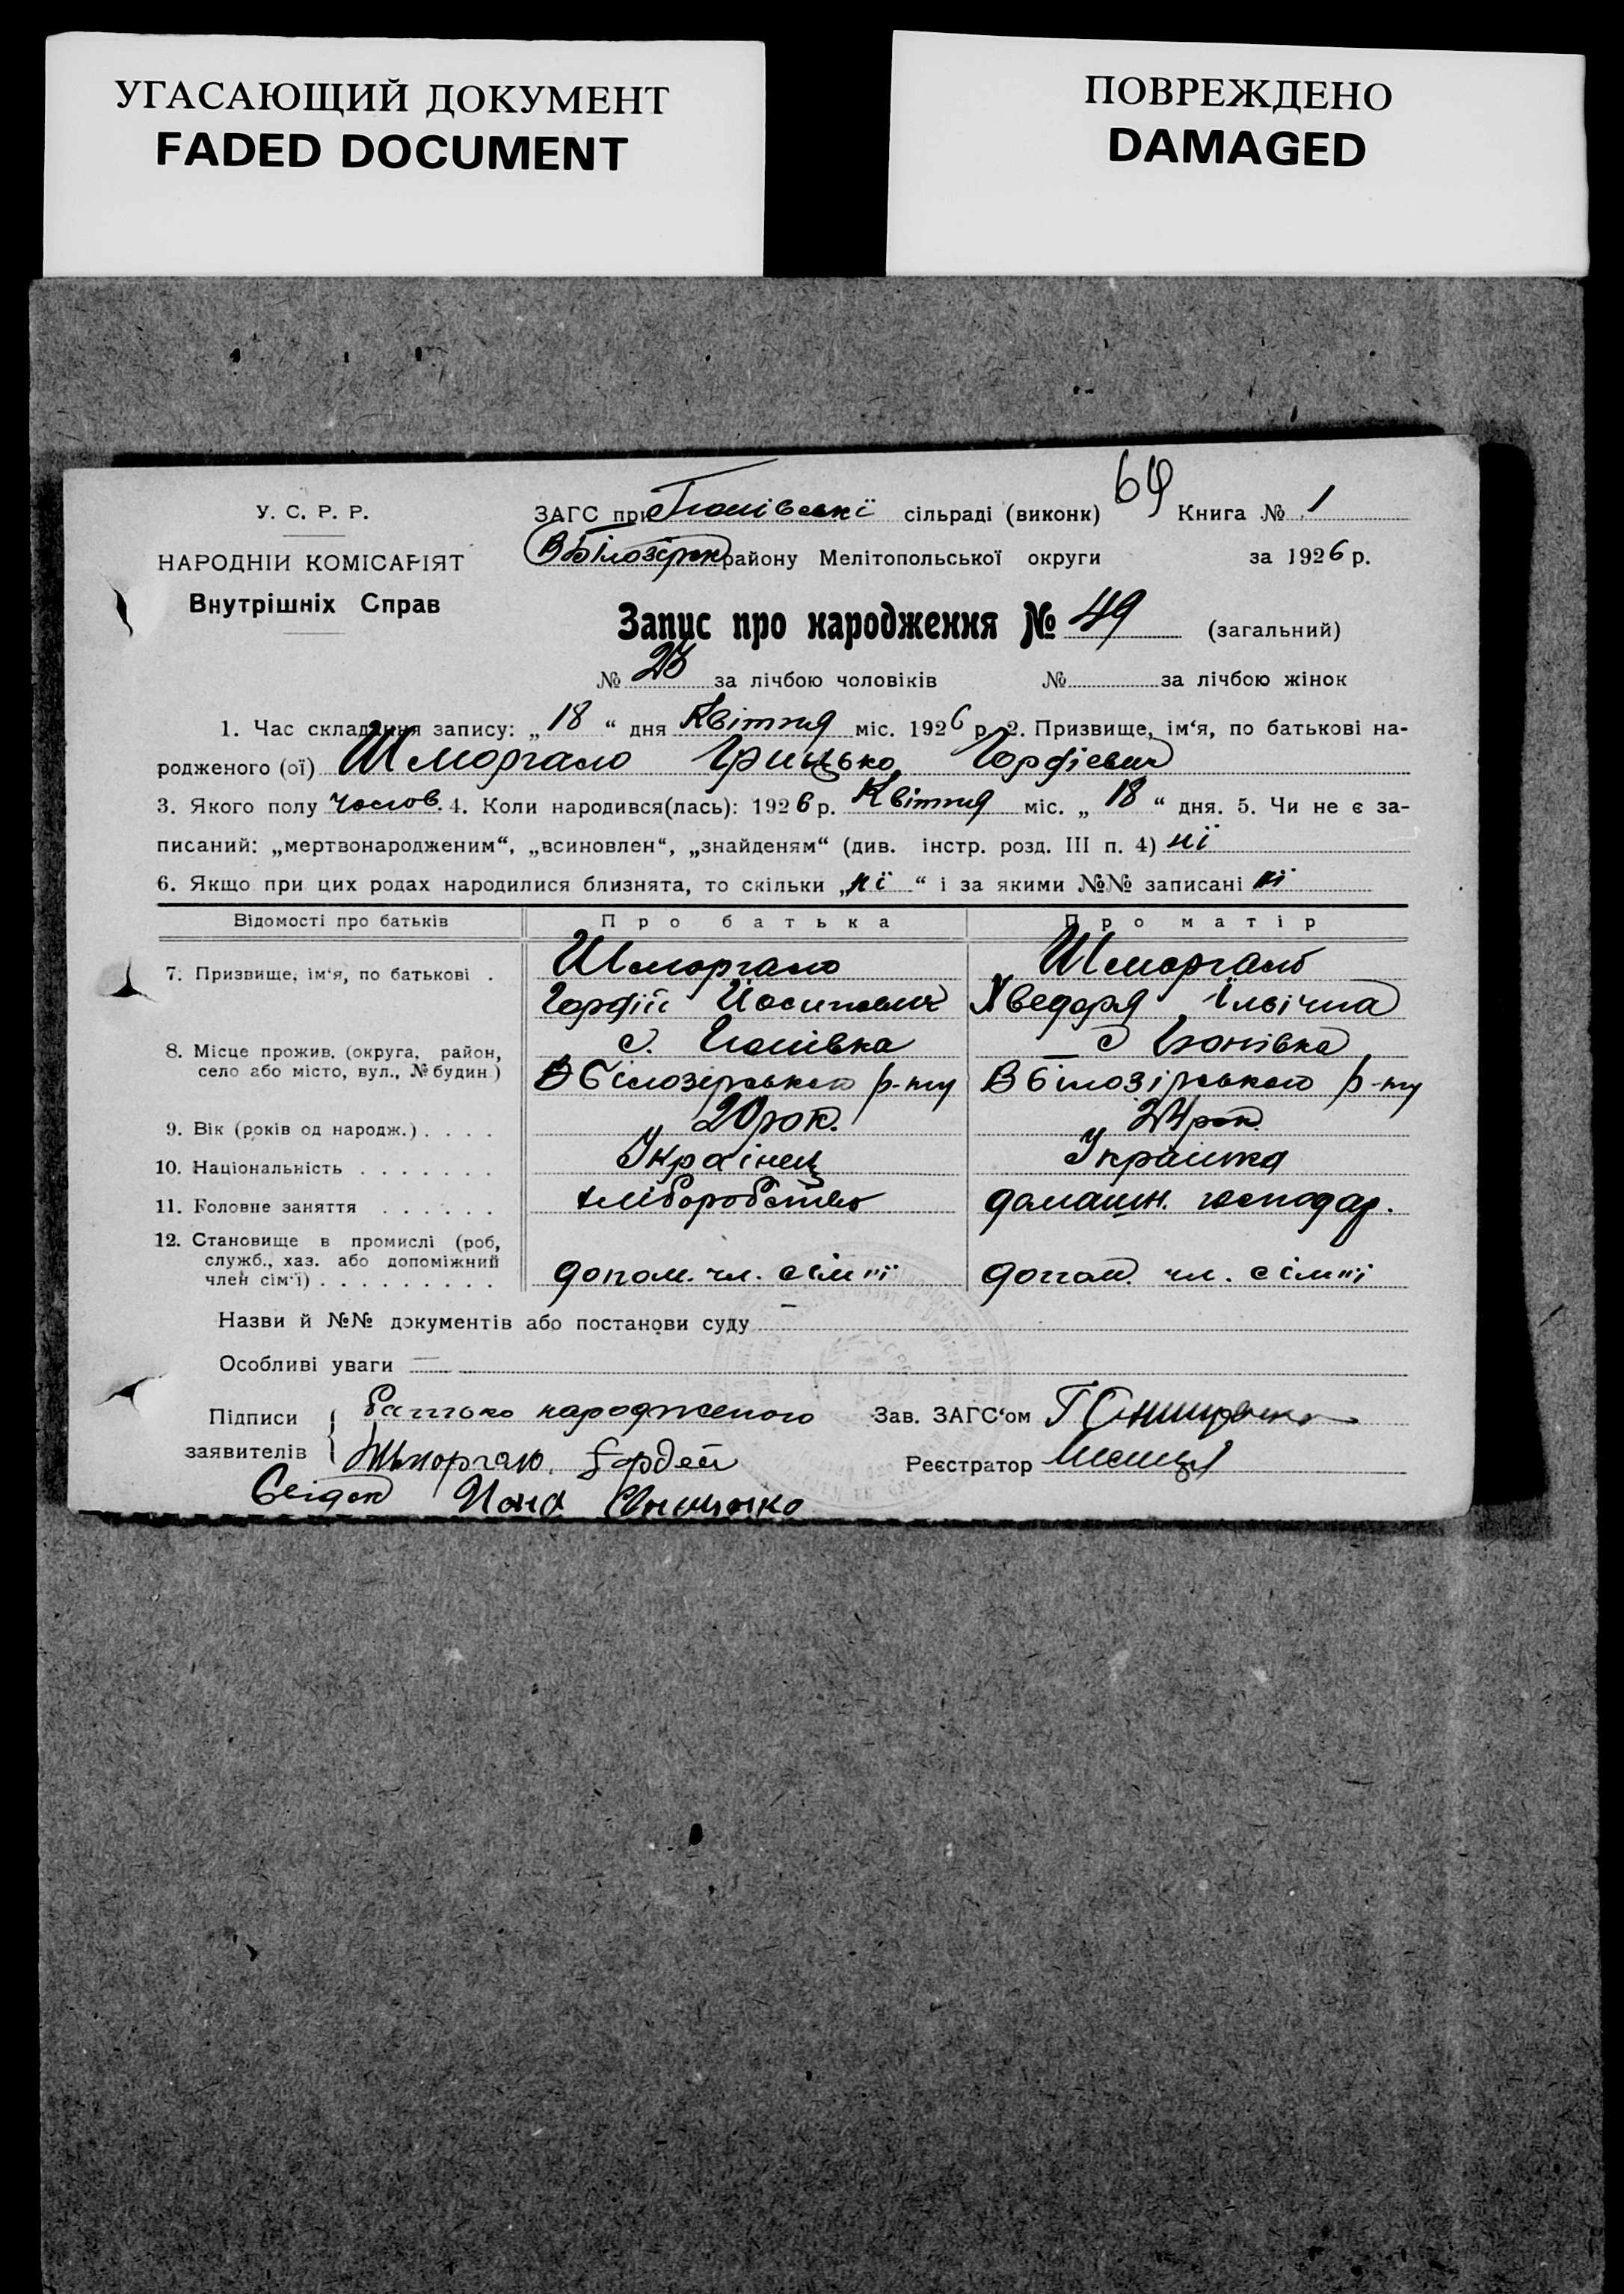 УГАСАЮЩИЙ ДОКУМЕНТ
FADED DOCUMENT
ПОВРЕЖДЕНО
DAMAGED
69
У. С. Р. Р.
НАРОДНІЙ КОМІСАРІЯТ
Внутрішніх Справ
ЗАГС при сільраді (виконк) Книга № 1
В Білозірк району Мелітопольської округи за 1926 р.
Запис про народження № 49 (загальний)
№ 23 за лічбою чоловіків № за лічбою жінок
1. Час складання запису: „18“ дня Квітня міс. 1926 р. 2. Призвище, ім‘я, по батькові на-
родженого (ої) Шморгало Грицько Гордієвич
3. Якого полу чолов. 4. Коли народився(лась): 1926 р. Квітня міс. „18“ дня. 5. Чи не є за-
писаний: „мертвонародженим“, „всиновлен“, „знайденям“ (див. інстр. розд. III п. 4) ні
6. Якщо при цих родах народилися близнята, то скільки „ні“ і за якими №№ записані ні
Відомості про батьків Про батька Про матір
7. Призвище, ім‘я, по батькові . Шморгало Шморгало
Гордій Йосипович Хведоря Ілвічна
8. Місце прожив. (округа, район, с. с
село або місто, вул., № будин) В Білозірського р-ну В Білозірського р-ну
9. Вік (років од народж.) . . . . 20 рок. 24 рок.
10. Національність . . . . . . . Українец Українка
11. Головне заняття . . . . . . хліборобство домашн. господар.
12. Становище в промислі (роб,
служб., хаз. або допоміжний
член сім‘ї) . . . . . . . . . допом. чл. сімʼї допом. чл. сімʼї
Назви й №№ документів або постанови суду
Особливі уваги —
Підписи
заявителів
Батько народженого
Шморгало Гордей
Свідок
Зав. ЗАГС‘ом
Реєстратор